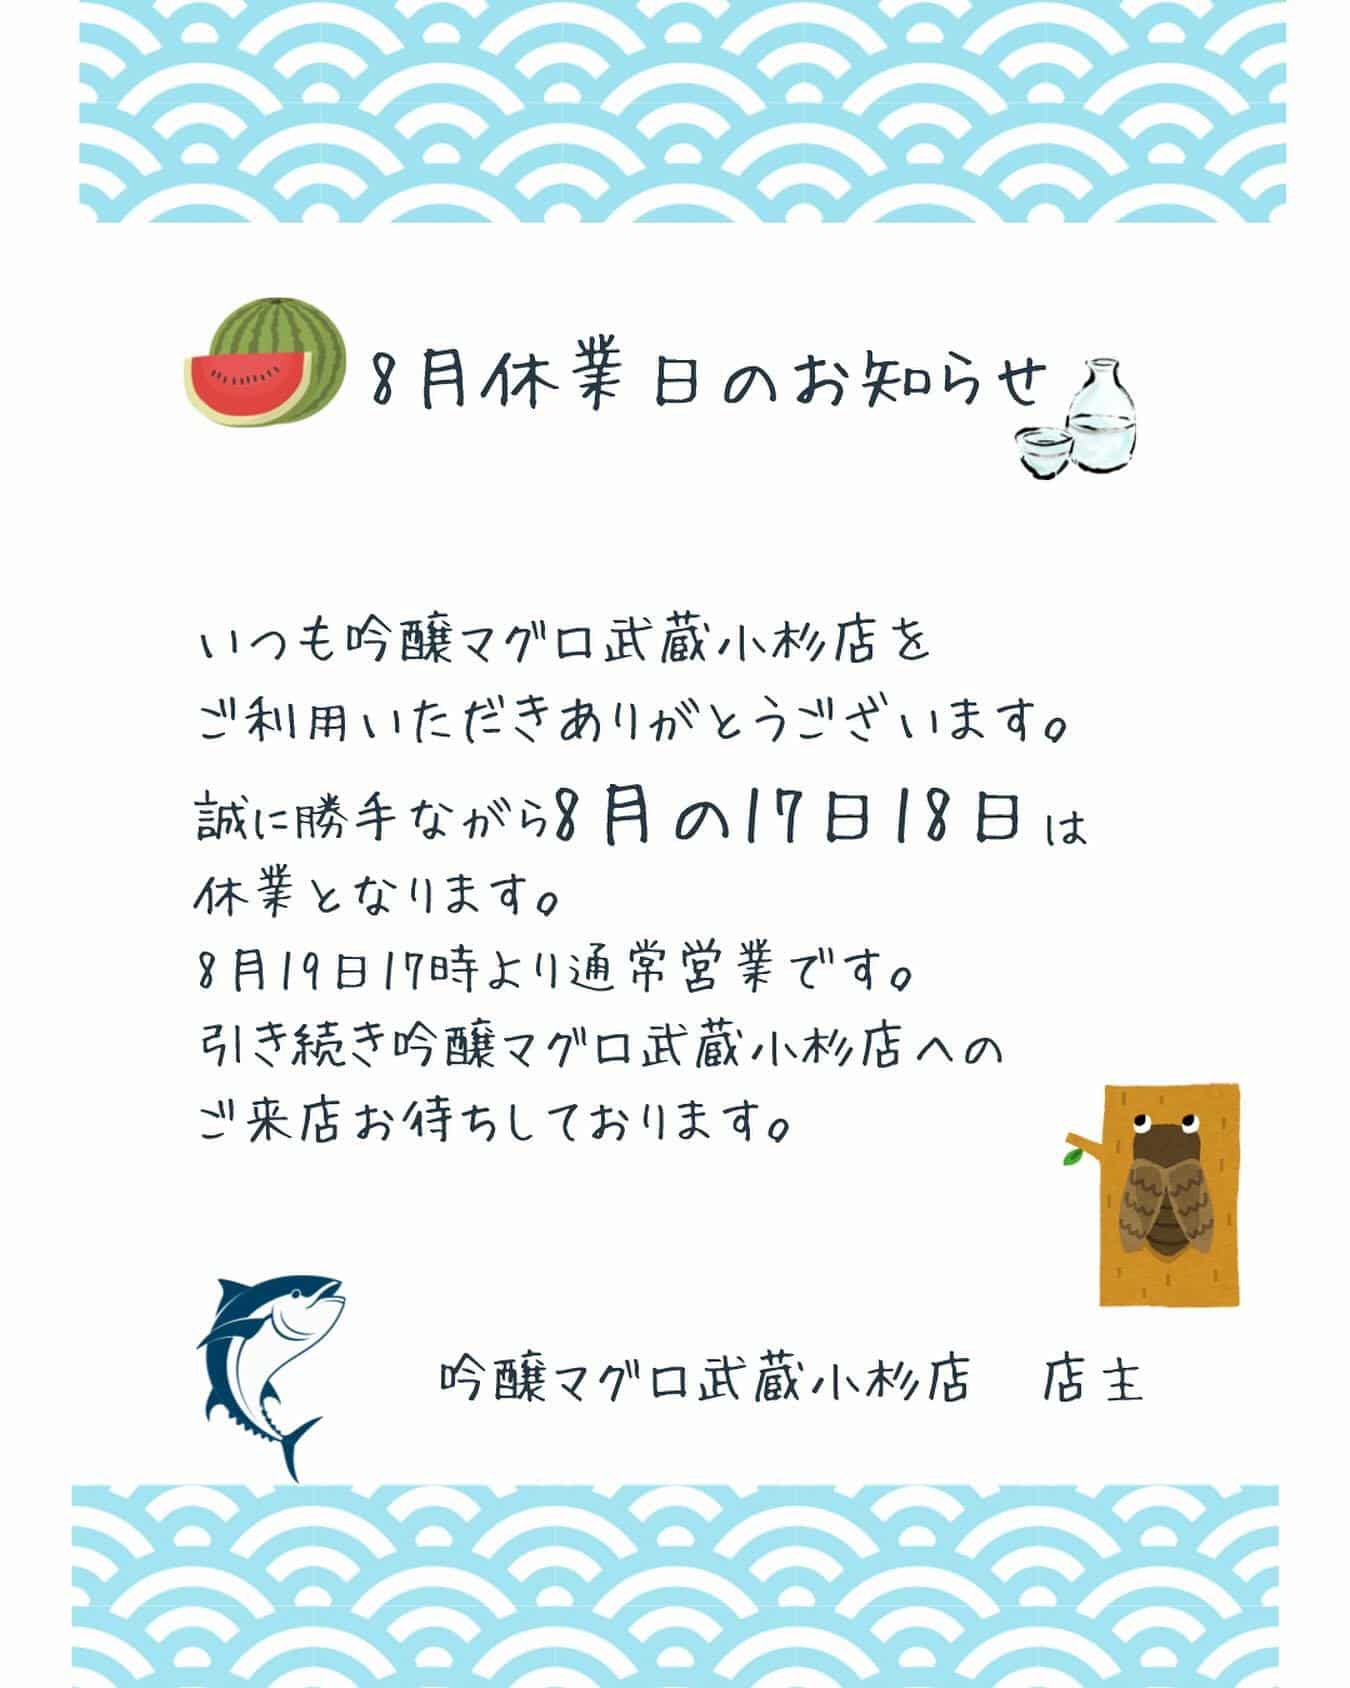 8月休業日のお知らせ
いつも吟醸マグロ武蔵小杉店を
ご利用いただきありがとうございます。
誠に勝手ながら8月の17日18日は
休業となります。
8月19日17時より通常営業です。
引き続き吟醸マグロ武蔵小杉店への
ご来店お待ちしております。
吟醸マグロ武蔵小杉店　店主